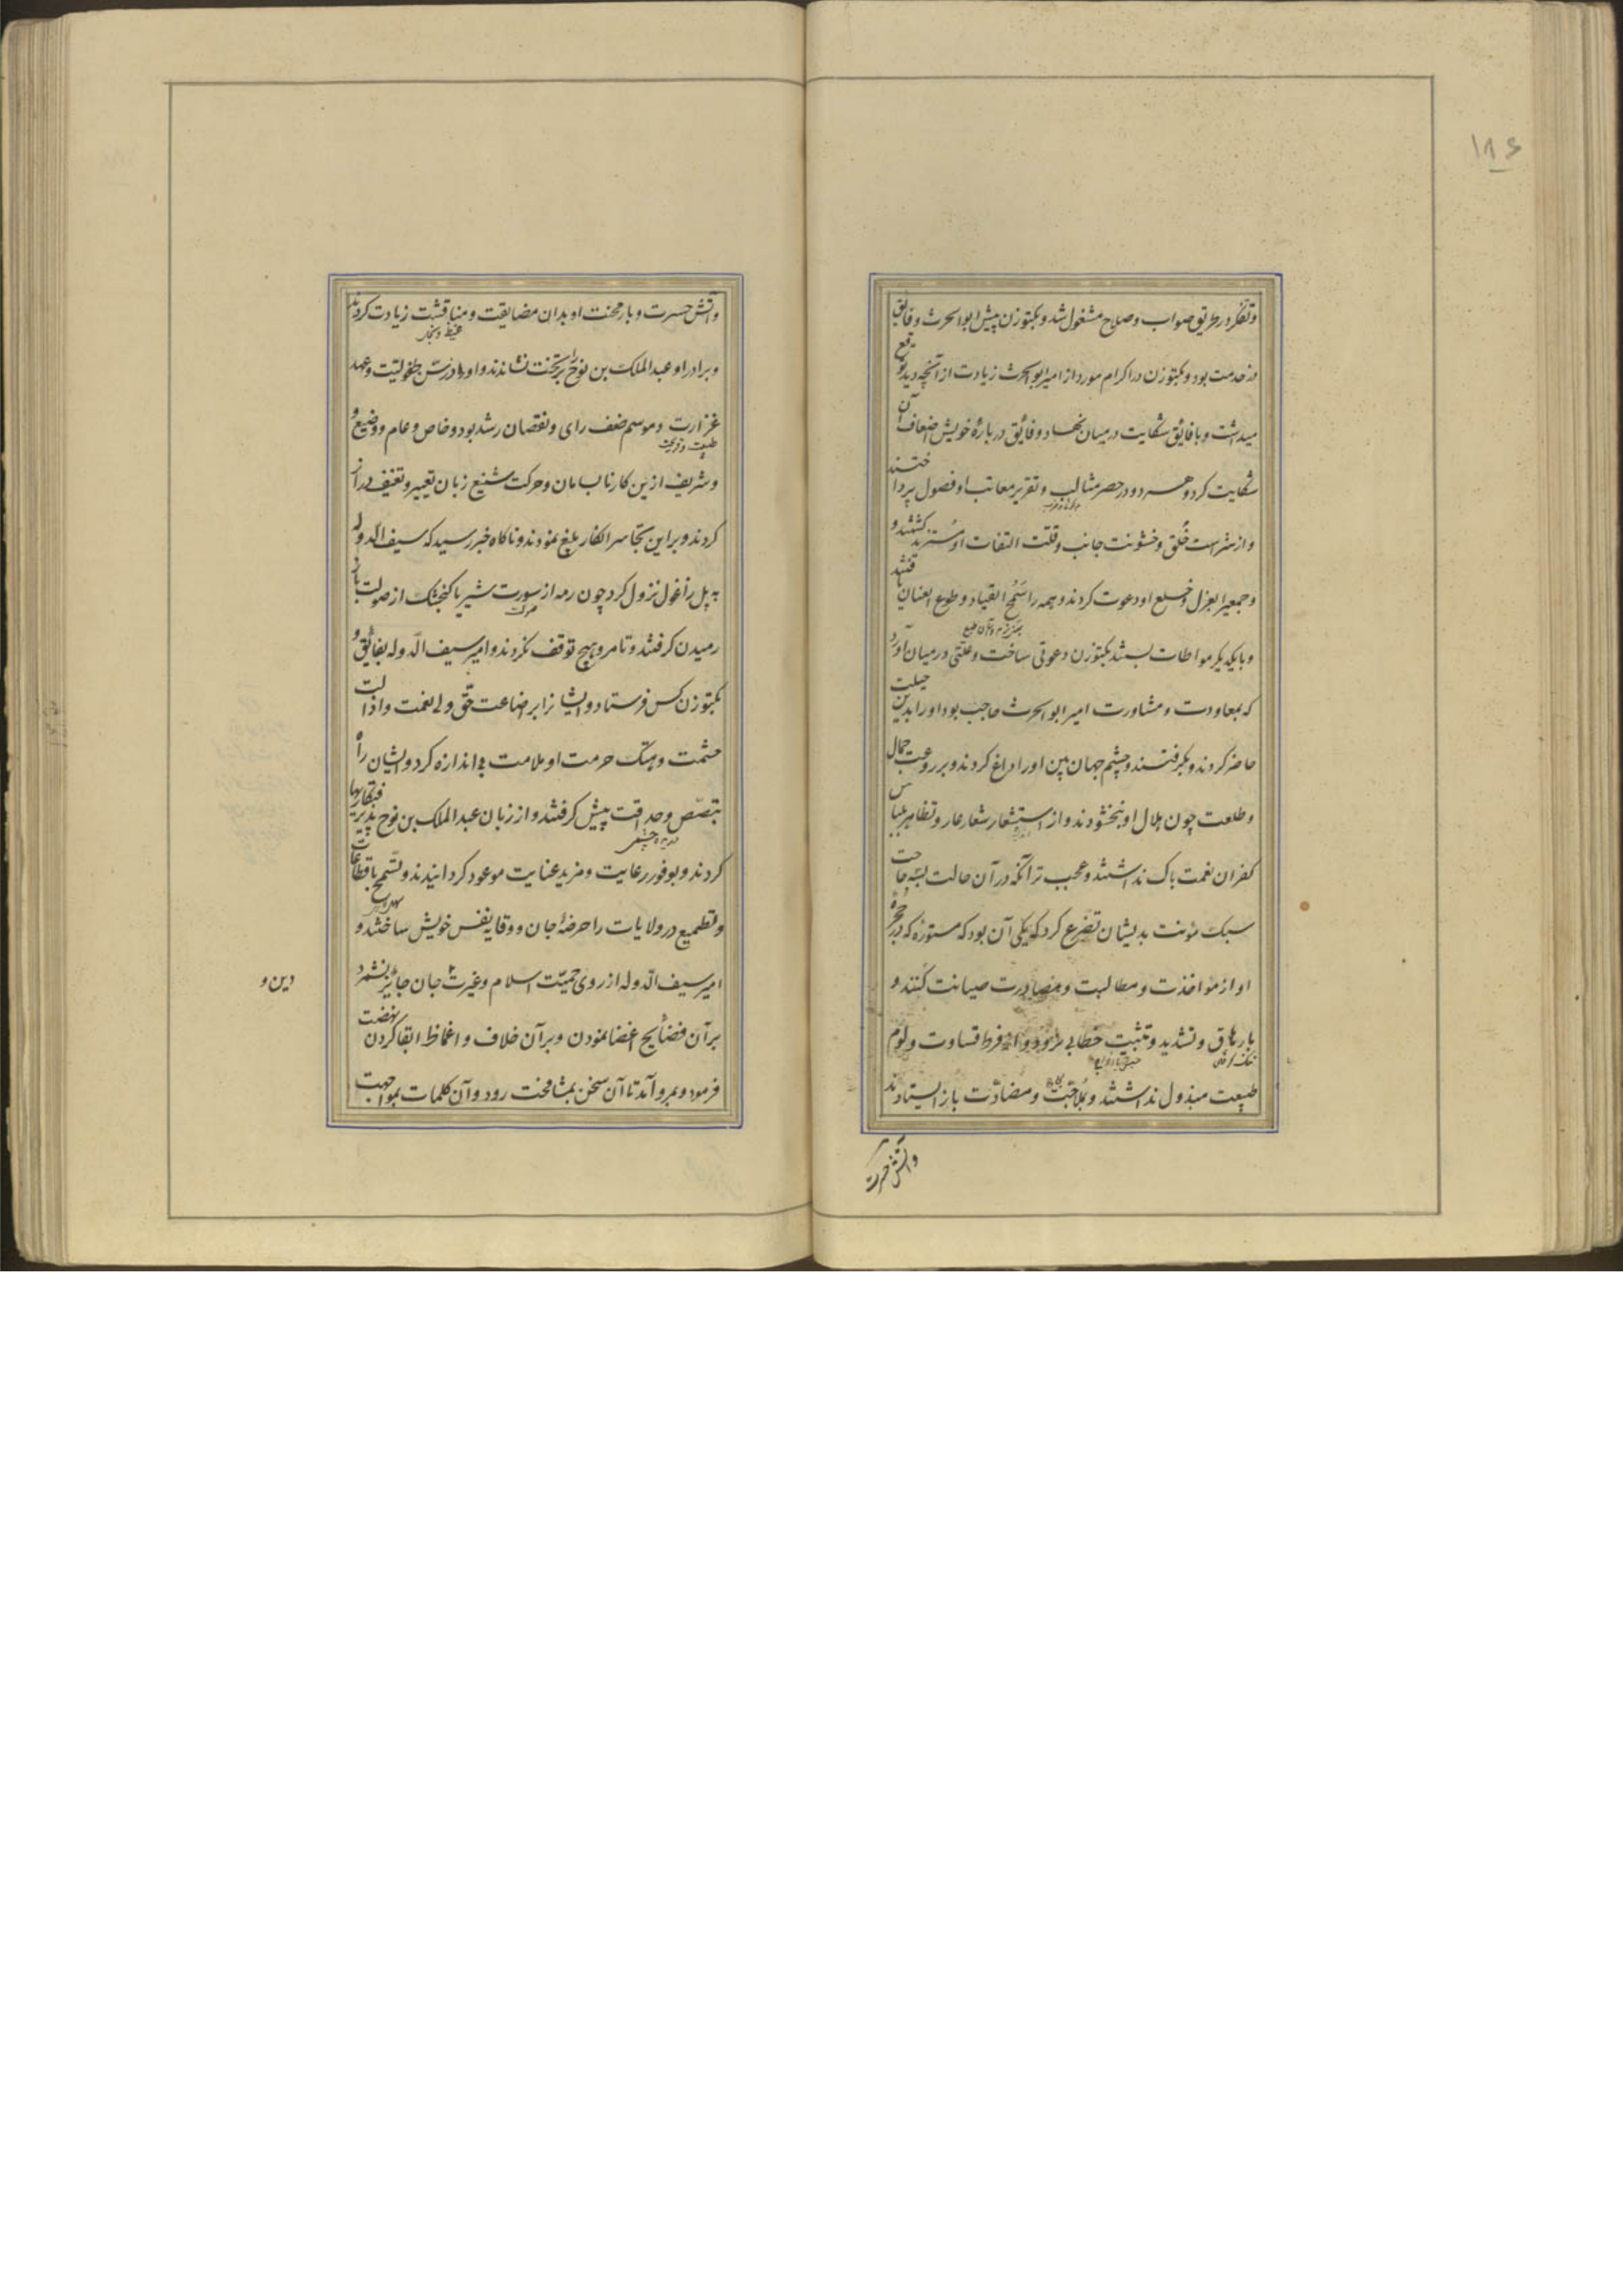 ۱۸۶
وتفکر در طریق صواب و صلاح مشغول شد و بکتوزن پیش ابوالحرث وفایق
در خدمت بود و بکتوزن در اکرام مورد از امیر ابوالحرث زیادت از آنچه دید توقع
میداشت و با فائق شکایت در میان نهاد و فائق در بارهٔ خویش اضعاف آن
شکایت کرد و هر دو در حصر مثالب و تقریر معاتب او فصول پرداختند
و از شراست خُلق و خشونت جانب و قلّت التفات او مستزید گشتند و
و جمعی را بعزل و خلع او دعوت کردند و همه را سَمْحُ القیاد و طوع العنان یافتند
و با یکدیگر مواطات بستند بکتوزن دعوتی ساخت و علّتی در میان آورد
که بمعاودت و مشاورت امیر ابوالحرث حاجب بود او را بدین حیلت
حاضر کردند و بگرفتند و چشم جهان بین او را داغ کردند و بر روعت جمال
و طلعت چون هلال او نبخشودند و از استشعار شعار عار و تظاهر بلباس
کفران نعمت باک نداشتند و عجب تر آنکه در آن حالت بسه حاجت
سبک مؤنت بدیشان تضرع کرد که یکی آن بود که مستوره که در حجرهٔ
او از مواخذت و مطالبت و مصادرت صیانت کنند و
بارهاق و تشدید و تثبیت خطابی نرود و از فرط قساوت و لوم
طبیعت مبذول نداشتند و بلاحَبَّت و مضادّت باز ایستادند
وآتش حسرت
وآتش حسرت و بار محنت او بدان مضایقت و مناقشت زیادت کردند
غیظ
و برادر او عبدالملک بن نوح را بر تخت نشاندند و او در سنّ طفولیّت و عهد
غرارت و موسم ضعف رای و نقصان رشد بود و خاص و عام و وضیع و
و شریف ازین کار نابسامان و حرکت شنیع زبان تعییر و تعنیف دراز
کردند و بر این تجاسر انکار بلیغ نمودند و ناکاه خبر رسید که سیف الدوله
به پل زاغول نزول کرد چون رمه از سورت شیر یا کنجشک از صولت باز
رمیدن کرفتند و تا مرو هیچ توقف نکردند و امیر سیف الدّوله بفائق و
بکتوزن کس فرستاد و ایشانرا بر اضاعت حقّ ولی نعمت و اذالت
حشمت و هتک حرمت او ملامت بی اندازه کرد و ایشان راه
تبصّص و حداقت پیش کرفتند و از زبان عبدالملک بن نوح پذیرفتکاریها
کردند و بوفور رعایت و مزید عنایت موعود کردانیدند و تسمّح باقطاعات
و تطمیع در ولایات را حرضهٔ جان و وقایه نفس خویش ساختند و
امیر سیف الدّوله از روی حمیّت اسلام و غیرت جان جائز نشمرد
دین و
بر آن فضایح اغضا نمودن و بر آن خلاف و اغماظ ابقا کردن نهضت
فرمود و بمرو آمد تا آن سخن بمشافهت رود و آن کلمات بمواجهت